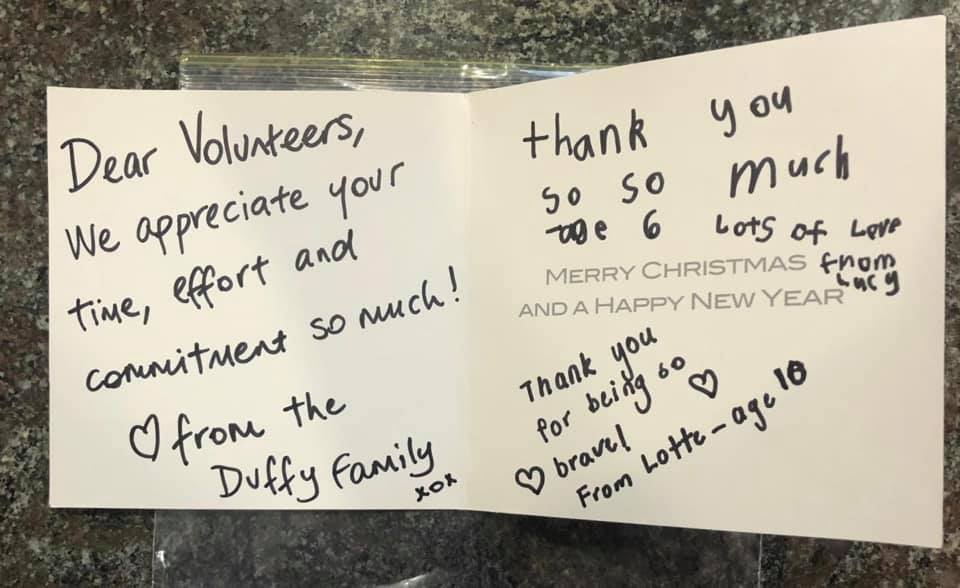 Dear Volunteers,
We appreciate your
time, effort and
commitment so much!
♡ from the
Duffy Family
xox
thank you
so so much
age 6 Lots of Love
from
Lucy
MERRY CHRISTMAS
AND A HAPPY NEW YEAR
Thank you
for being so ♡
♡ brave!
From Lotte - age 10